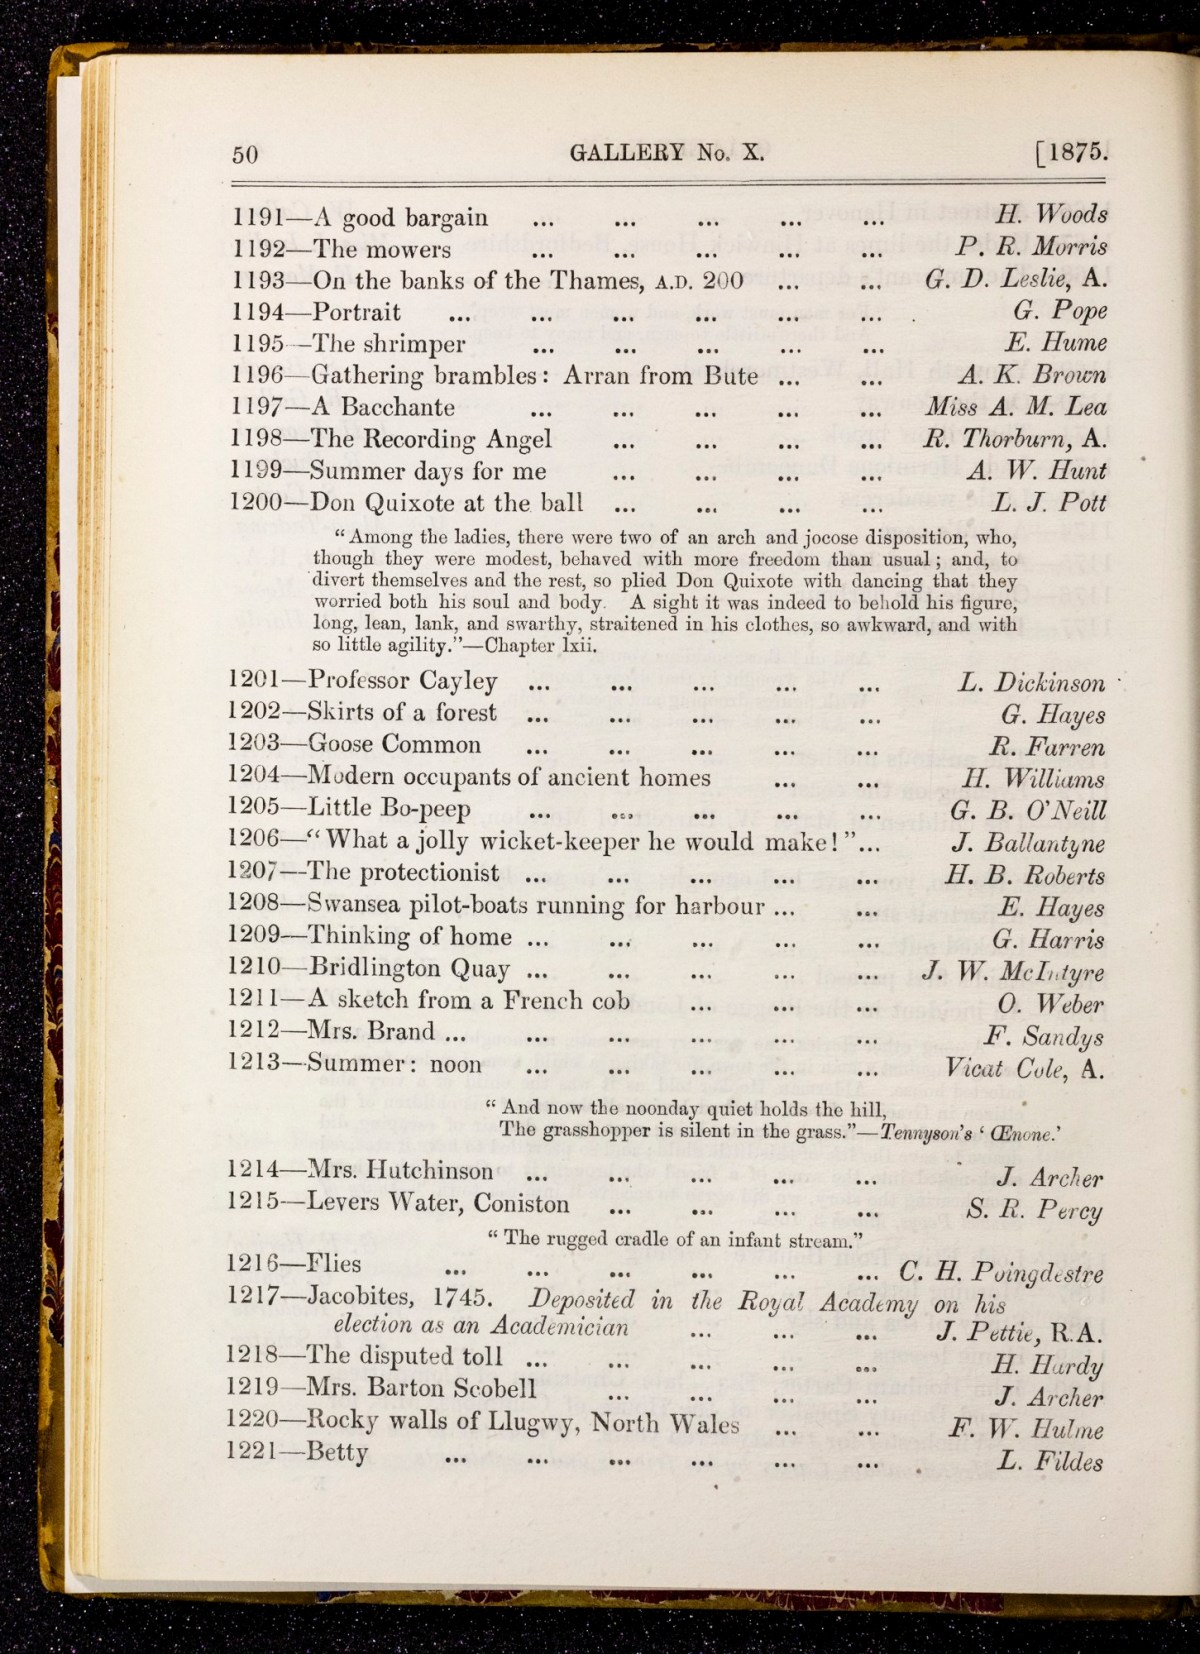 50 GALLERY No. X. [1875.
1191—A good bargain ... ... ... ... ... H. Woods
1192—The mowers ... ... ... ... ... P. R. Morris
1193—On the banks of the Thames, A.D. 200 ... ... G. D. Leslie, A.
1194—Portrait ... ... ... ... ... ... G. Pope
1195—The shrimper ... ... ... ... ... E. Hume
1196—Gathering brambles: Arran from Bute ... ... A. K. Brown
1197—A Bacchante ... ... ... ... ... Miss A. M. Lea
1198—The Recording Angel ... ... ... ... R. Thorburn, A.
1199—Summer days for me ... ... ... ... A. W. Hunt
1200—Don Quixote at the ball ... ... ... ... L. J. Pott
“Among the ladies, there were two of an arch and jocose disposition, who,
though they were modest, behaved with more freedom than usual; and, to
divert themselves and the rest, so plied Don Quixote with dancing that they
worried both his soul and body. A sight it was indeed to behold his figure,
long, lean, lank, and swarthy, straitened in his clothes, so awkward, and with
so little agility.”—Chapter lxii.
1201—Professor Cayley ... ... ... ... ... L. Dickinson
1202—Skirts of a forest ... ... ... ... ... G. Hayes
1203—Goose Common ... ... ... ... ... R. Farren
1204—Modern occupants of ancient homes ... ... H. Williams
1205—Little Bo-peep ... ... ... ... ... G. B. O'Neill
1206—“What a jolly wicket-keeper he would make!”... J. Ballantyne
1207—The protectionist ... ... ... ... ... H. B. Roberts
1208—Swansea pilot-boats running for harbour ... ... E. Hayes
1209—Thinking of home ... ... ... ... ... G. Harris
1210—Bridlington Quay ... ... ... ... ... J. W. McIntyre
1211—A sketch from a French cob ... ... ... O. Weber
1212—Mrs. Brand ... ... ... ... ... ... F. Sandys
1213—Summer: noon ... ... ... ... ... Vicat Cole, A.
“And now the noonday quiet holds the hill,
The grasshopper is silent in the grass.”—Tennyson's ‘Œnone.’
1214—Mrs. Hutchinson ... ... ... ... ... J. Archer
1215—Levers Water, Coniston ... ... ... ... S. R. Percy
“The rugged cradle of an infant stream.”
1216—Flies ... ... ... ... ... ... C. H. Poingdestre
1217—Jacobites, 1745. Deposited in the Royal Academy on his
election as an Academician ... ... ... J. Pettie, R.A.
1218—The disputed toll ... ... ... ... ... H. Hardy
1219—Mrs. Barton Scobell ... ... ... ... J. Archer
1220—Rocky walls of Llugwy, North Wales ... ... F. W. Hulme
1221—Betty ... ... ... ... ... ... L. Fildes